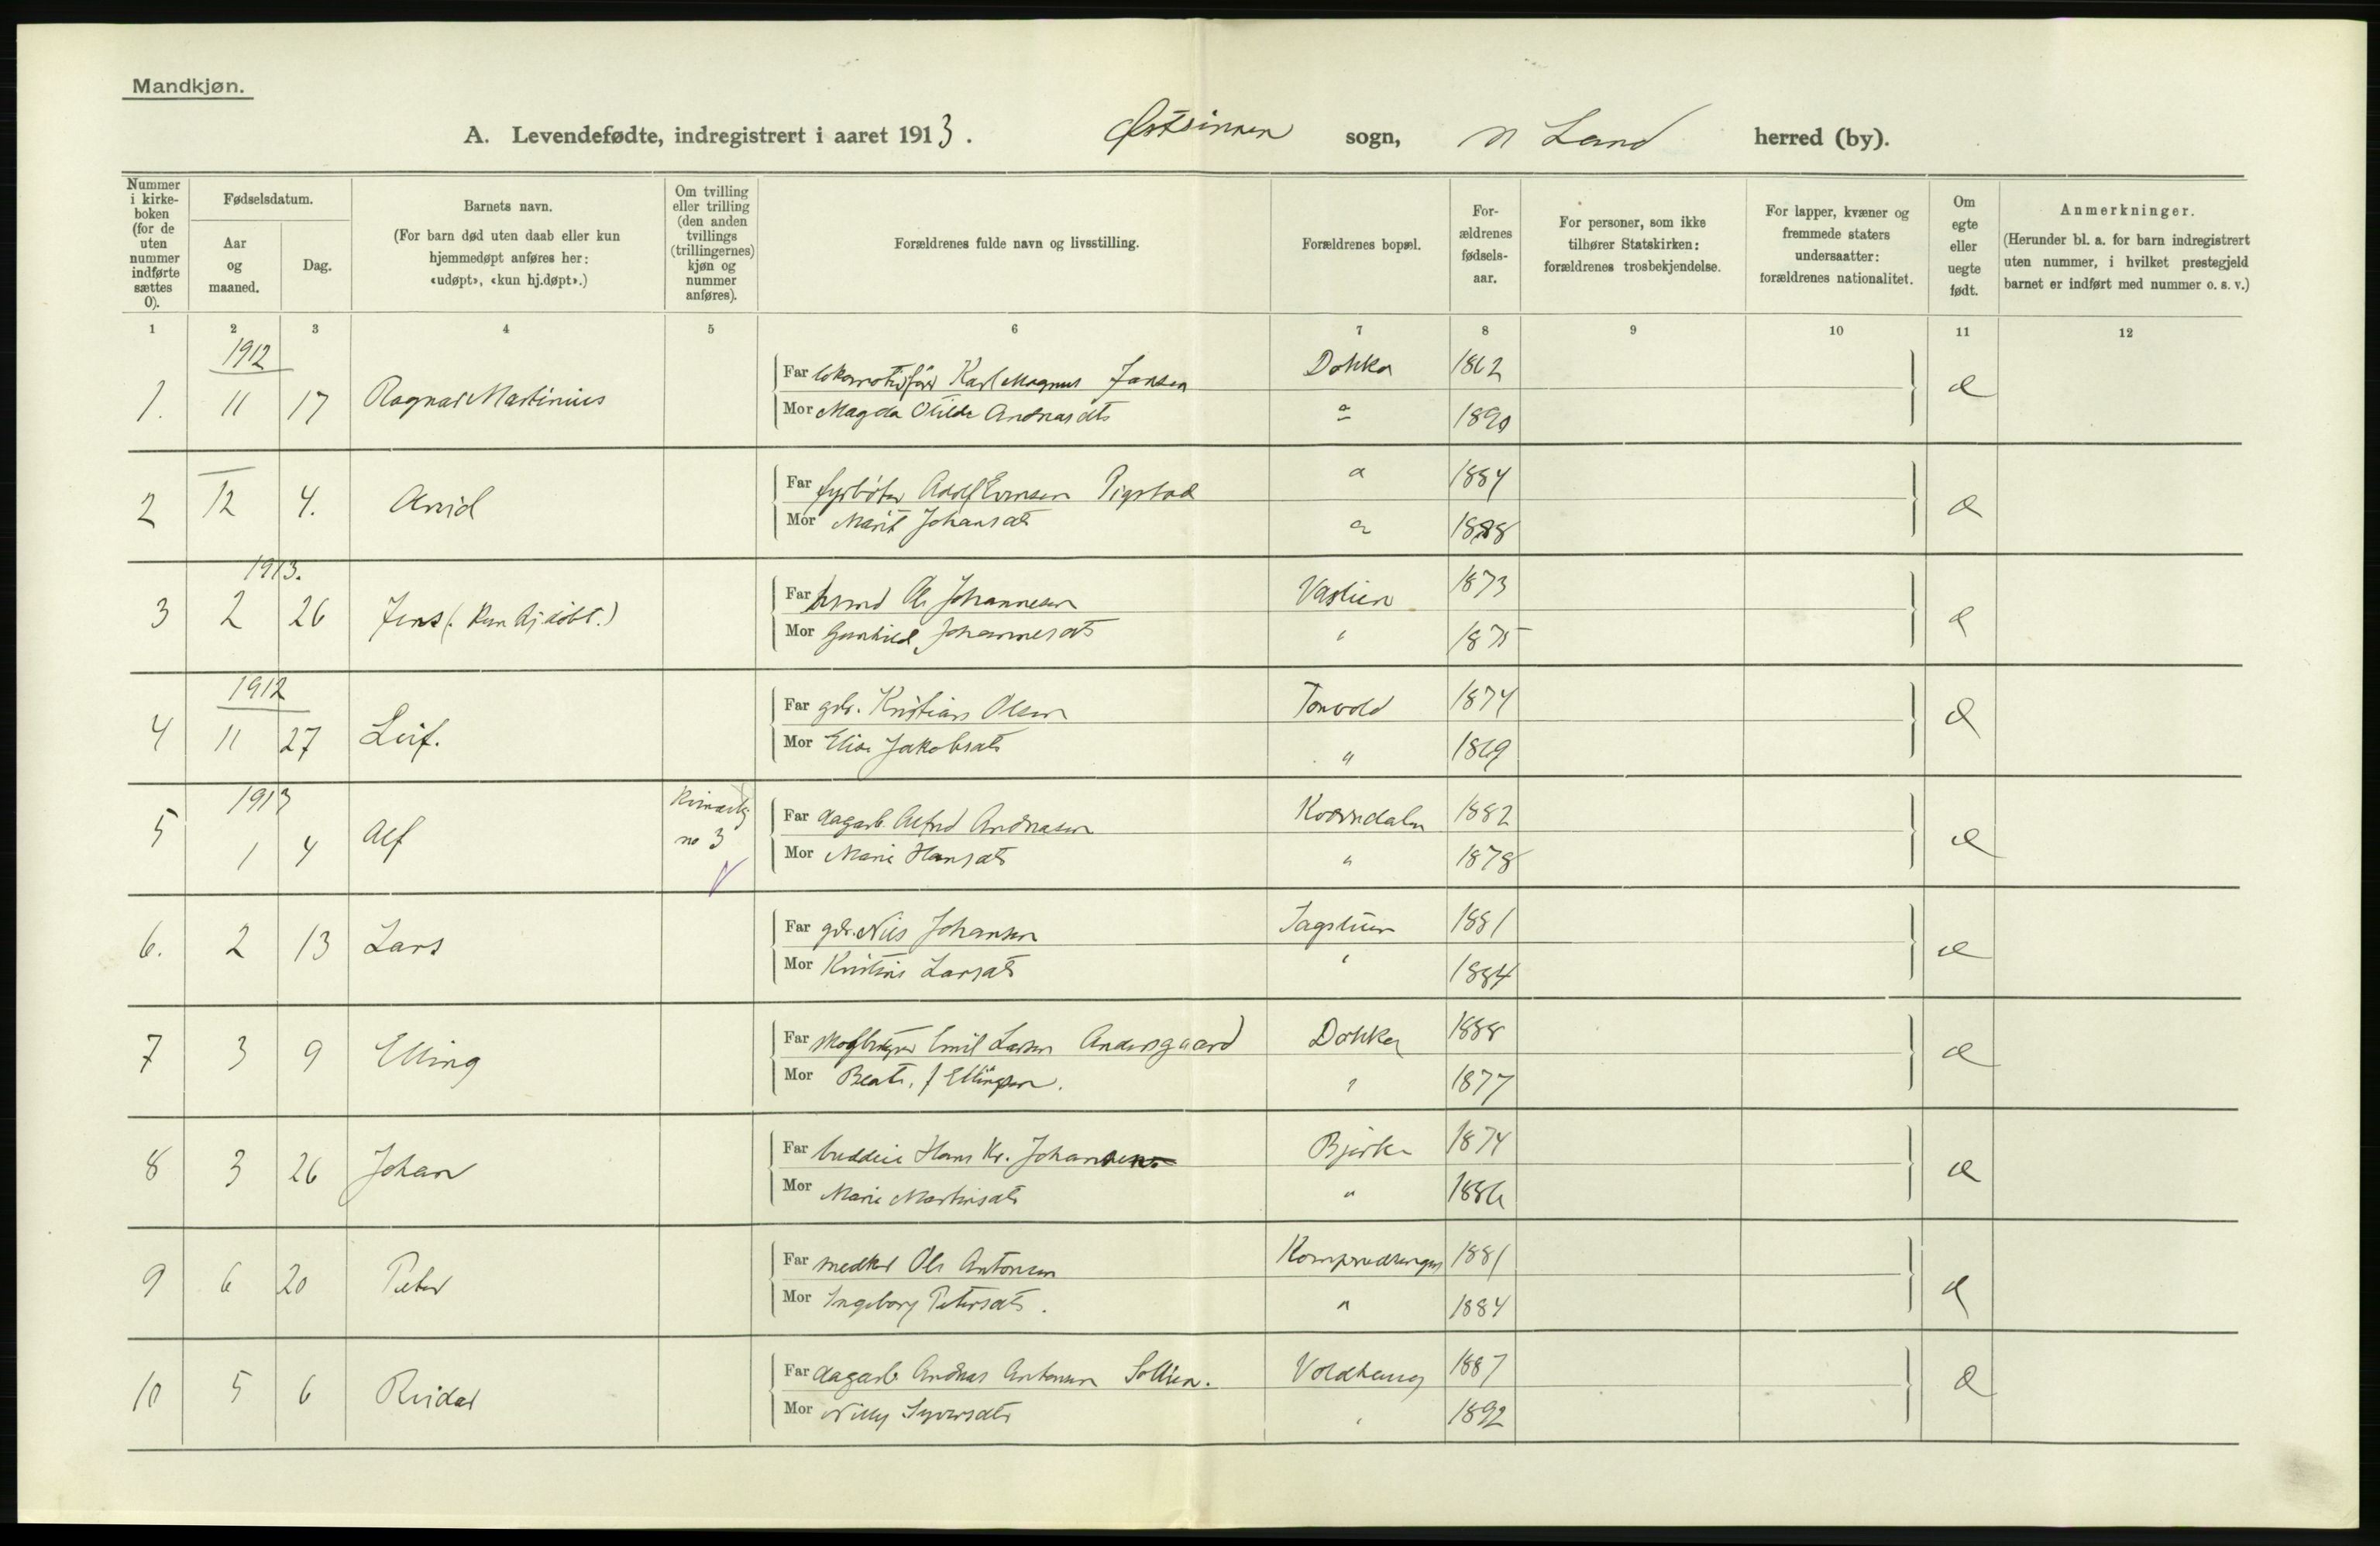 Mandkjøn.
A. Levendefødte, indregistrert i aaret 1913. Østsinnen sogn, N Land herred (by).
Nummer i kirke-boken (for de uten nummer indførte sættes 0).
Fødselsdatum.
Aar og maaned.
Dag.
Barnets navn.
(For barn død uten daab eller kun hjemmedøpt anføres her: «udøpt», «kun hj.døpt».)
Om tvilling eller trilling (den anden tvillings (trillingernes) kjøn og nummer anføres).
Forældrenes fulde navn og livsstilling.
Forældrenes bopæl.
For-ældrenes fødsels-aar.
For personer, som ikke tilhører Statskirken: forældrenes trosbekjendelse.
For lapper, kvæner og fremmede staters undersaatter: forældrenes nationalitet.
Om egte eller uegte født.
Anmerkninger.
(Herunder bl. a. for barn indregistrert uten nummer, i hvilket prestegjeld barnet er indført med nummer o. s. v.)
1 2 3 4 5 6 7 8 9 10 11 12
1912
1. 11 17 Ragnar Martinius Far Karl Magnus Jansen Dokka 1862 e
Mor Magda Otilde Andreasdtr " 1890
2 12 4. Arvid Far fyrbøter Adolf Evensen Pigstad " 1884 e
Mor Marit Johansdtr " 1888
1913.
3 2 26 Jens (: kun hj.døbt.) Far Ole Johannesen Vaslien 1873 e
Mor Gunhild Johannesdtr " 1875
1912
4 11 27 Leif. Far gdr. Kristian Olsen Tonvold 1874 e
Mor Elise Jakobsdtr " 1869
1913
5 1 4 Alf no 3 Far dagarb. Alfred Andreasen Kværndalen 1882 e
Mor Marie Hansdtr " 1878
6. 2 13 Lars Far gdr. Nils Johansen 1881 e
Mor Kristine Larsdtr " 1884
7 3 9 Elling Far Emil Larsen Andersgaard Dokka 1888 e
Mor Beate, f Ellingsen. " 1877
8 3 26 Johan Far Hans Kr. Johansen Bjørke 1874 e
Mor Marie Martinsdtr " 1886
9 6 20 Peter Far snedker Ole Antonsen 1881 e
Mor Ingeborg Petersdtr. " 1884
10 5 6 Reidar Far dagarb Andreas Antonsen Sollien. Voldhaug 1887 e
Mor Nilly Syversdtr " 1892